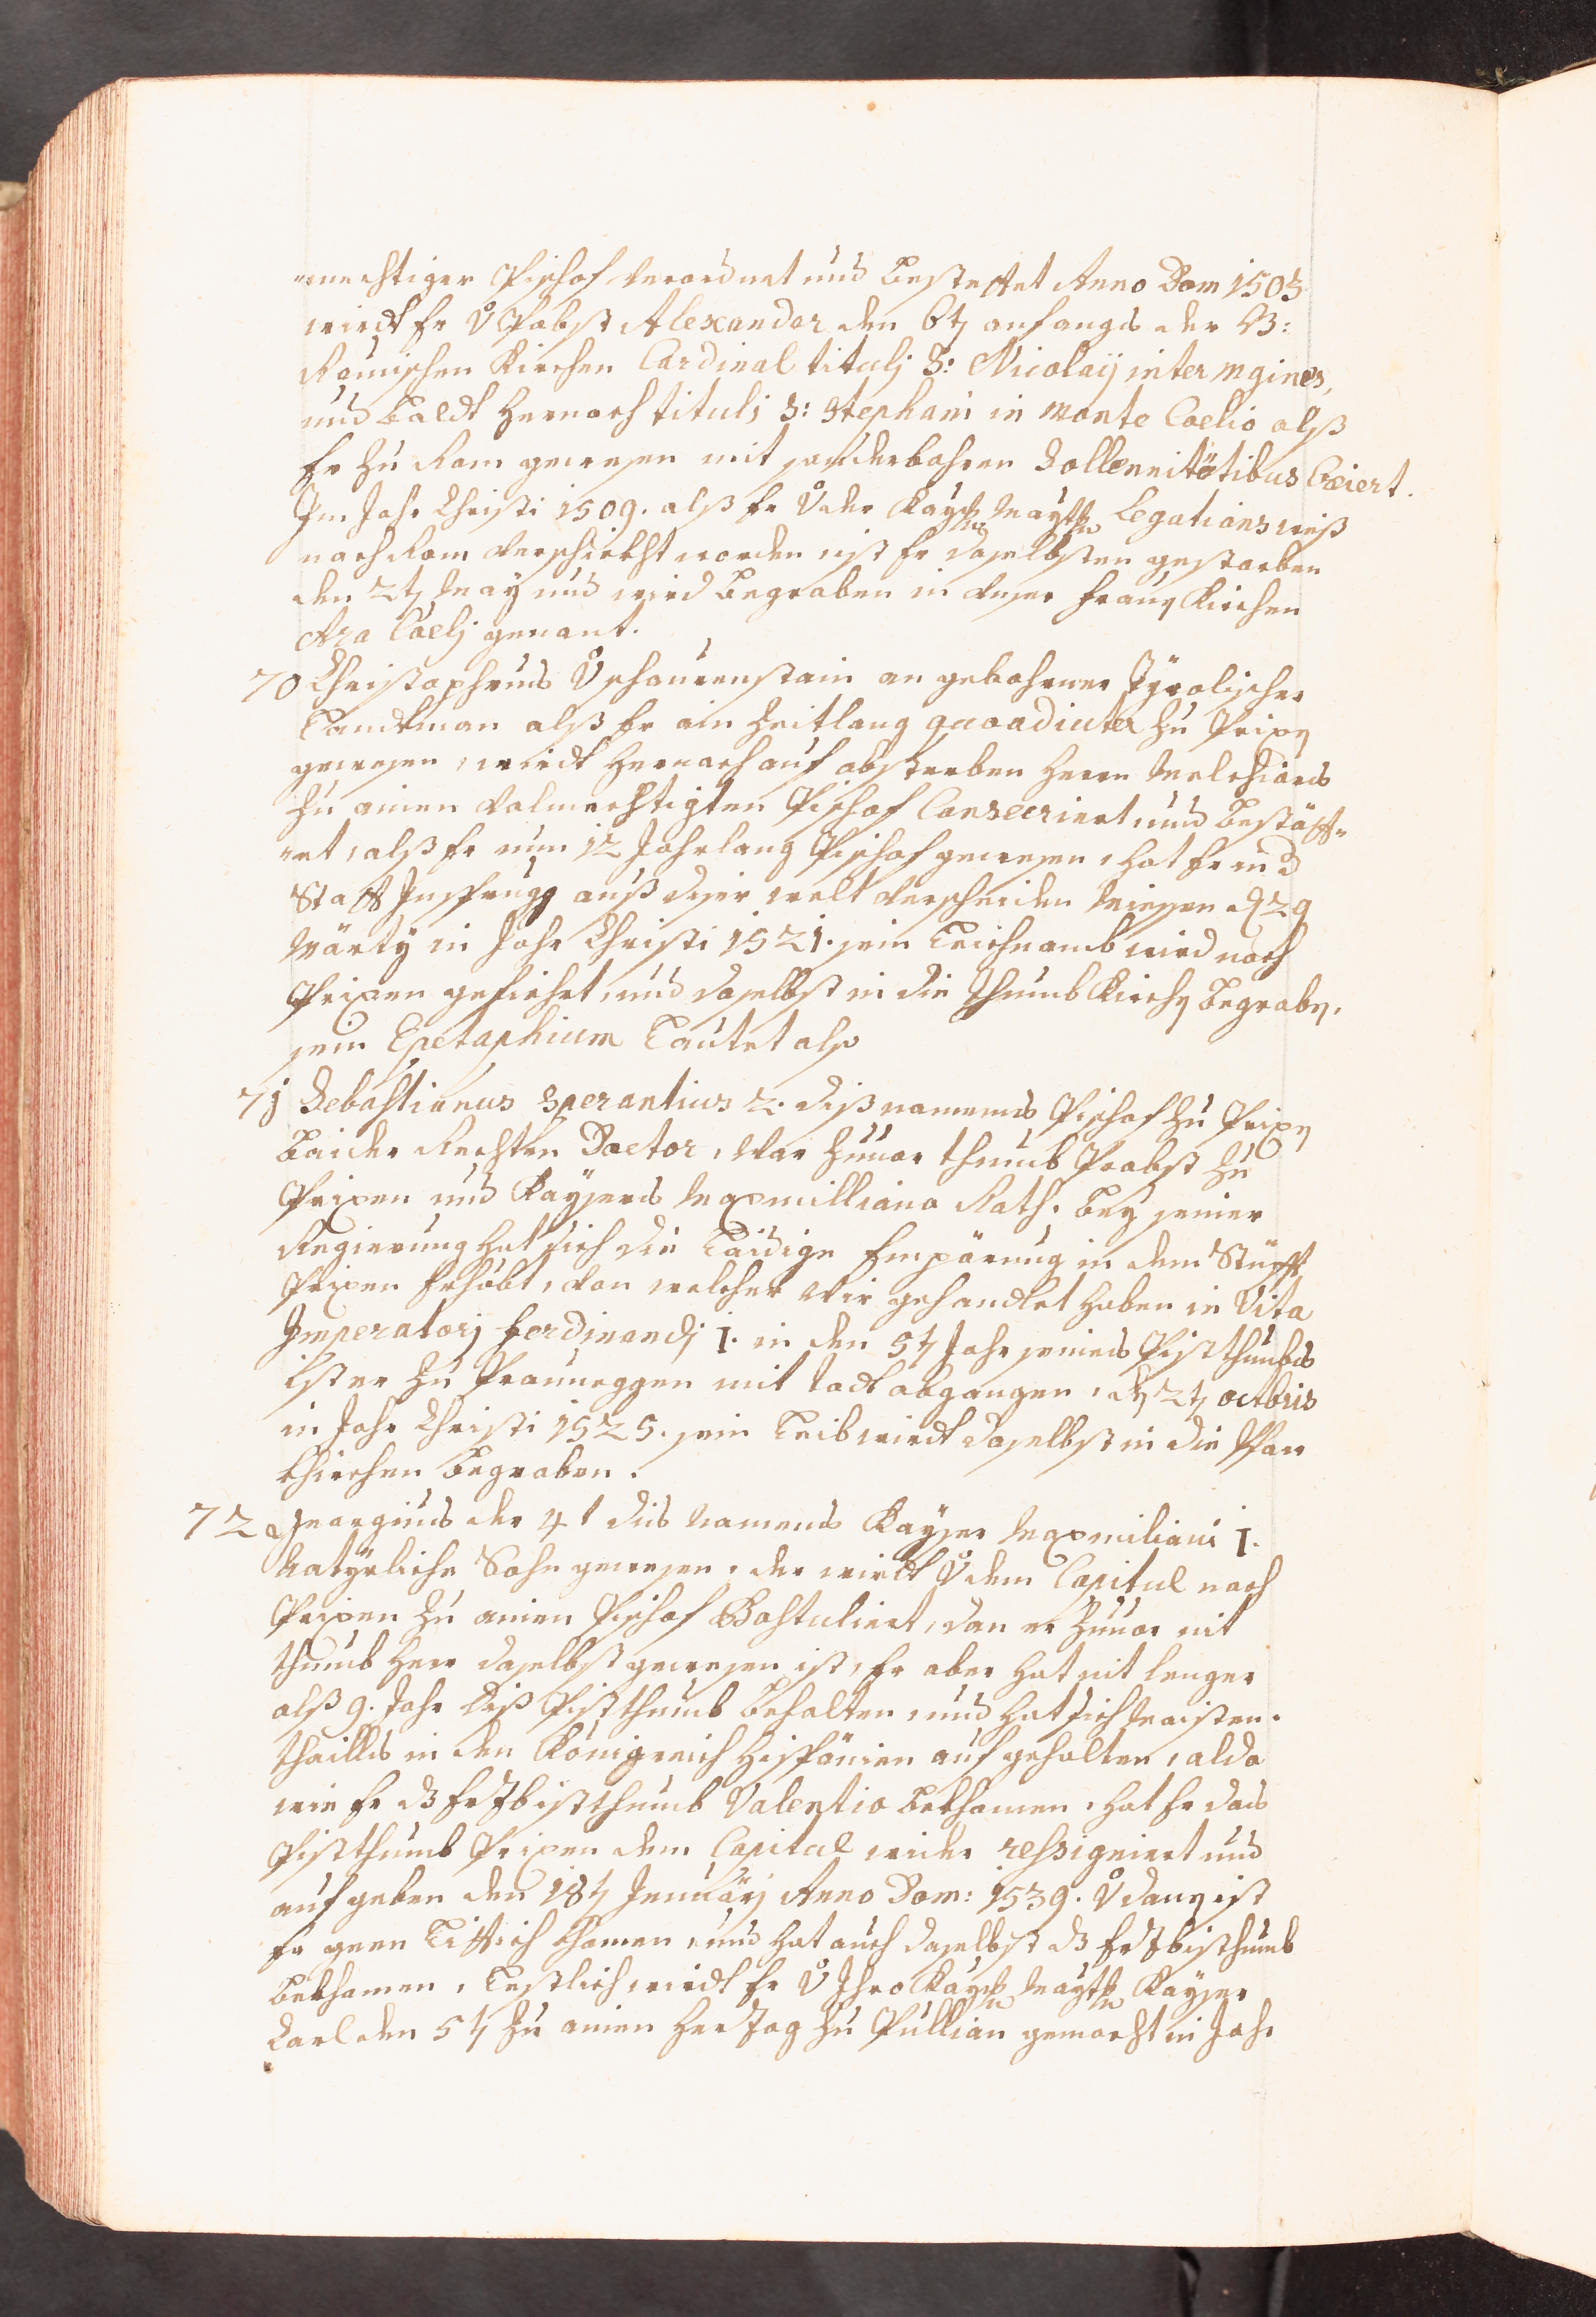 -mechtiger Pischof verordnet und bestettet Anno Dom 1503
wirdt Er v Pabst Alexander den 6tn anfangs der R:
Römischen Kirchen Cardinal titulj S: Nicolaÿ inter Mgines,
und baldt hernach tituli S: Stephani in Monte Coelio alß
Er zu Rom gewesen mit sonderbahren Sollennitètibus Creiert.
Im Jahr Christi 1509. alß Er v der Kaÿ: Maÿtt: Legations weiß
nach Rom verschickht worden, ist Er daselbsten gestorben
den 2tn Maÿ und wird begraben in unser frauen Kirchen
Ara Coelj genant.
70 Christophrus v schrouenstain an gebohrner Tÿrolischer
Landtman alß Er ain Zeitlang quoadiuter zu Prixn
gewesen, wirdt hernach auf absterben herrn Melchiors
zu ainen volmechtigten Pischof Consecriert und bestätt-
-et, alß Er nun 12 Jahrlang Pischof gewesen, hat Er in d
Statt Insprugg auß diser welt verscheiden miessen d 29
Märtÿ in Jahr Christi 1521. sein Leichnamb wird nach
Prixen gefiehrt, und daselbst in die thumb Kirchn begrabn.
sein Epetaphium Lautet also
71 Sebastianus Sperantius 2. diß namens Pischof zu Prixn
baider Rechten Doctor, war zuuor thumb Probst zu
Prixen und Kaÿsers Maxmilliano Rath. beÿ seiner
Regierung hat sich die Laidige Empörung in dem Stüfft
Prixen Erhöbt, von welcher wir gehandlet haben in Vita
Imperatorj Ferdinandj I. in den 5tn Jahr seines Pistthumbs
ist er zu Prauneggen mit todt abgangen, dn 2tn octbris
in Jahr Christi 1525. sein Leib wirdt daselbst in die Pfarr
Khirchen begraben.
72 Georgius der 4t dis Namens Kaÿser Maxmiliani I.
Natÿrliche Sohn gewesen, der wirdt v dem Capitul nach
Prixen zu ainen Pischof Postuliert, dan er zuuor nit
thumb herr daselbst gewesen ist, Er aber hat nit lenger
alß 9. Jahr diß Pistthumb behalten, und hat sich Maisten.
thailß in den Königreich Hispänien auf gehalten, alda
wie Er dß Erzbistthumb Valentio bekhomen, hat Er das
Pistthumb Prixen dem Capitul wider resigniert und
auf geben den 18tn Jenuärj Anno Dom: 1539. v dann ist
Er geen Littich khomen, und hat auch daselbst dß Erzbisthumb
bekhomen, Lestlich wirdt Er v Ihro Kaÿ: Maÿtt: Kaÿser
Carl den 5tn zu ainen Herzog zu Pullian gemacht in Jahr